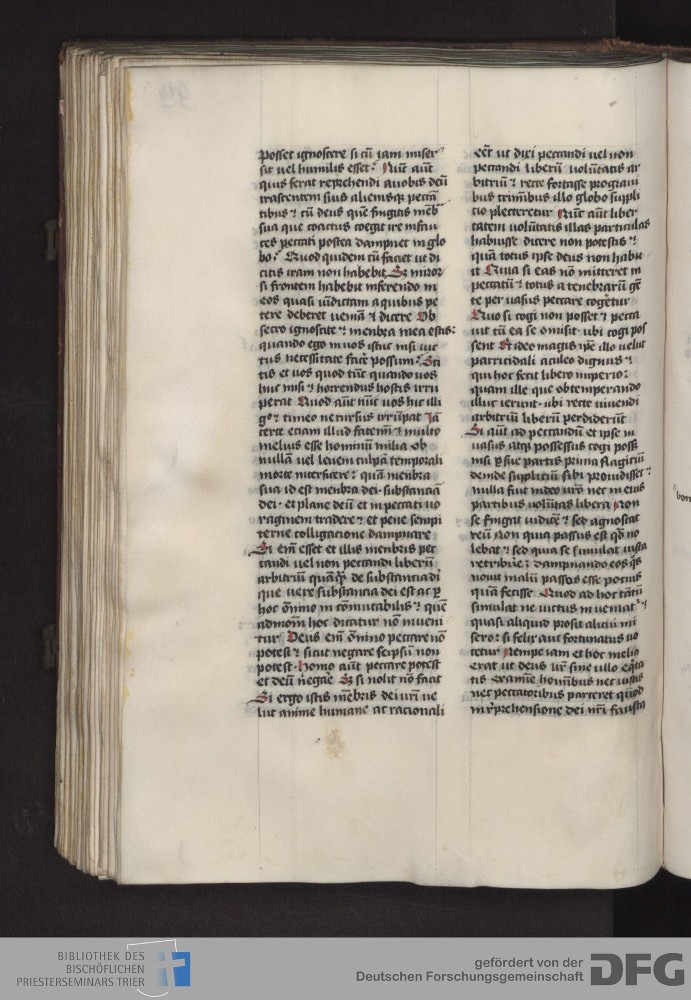 posset ignoscere si cũ iam miser
sit uel humilis esset Nũc aũt
quis ferat reprehendi a uobis deũ
irascentem suis aliensisq̃ peccã
tibus ⁊ cũ deus quẽ fingitis mẽb̃
sua que coactus coegit ire in fau
ces peccati postea dampnet in glo
bo Quod quidem cũ faciet ut di
citis iram non habebit Sz miror
si frontem habebit inferendo in
eos quasi uĩdictam a quibus pe
tere deberet ueniã ⁊ dicere Ob
secro ignoscite ⁊ menbra mea estis:
quando ego in uos istuc nisi uic
tus necessitate facẽ possum Sci
tis et uos quod tũc quando uos
huc misi ⁊ horrendus hostis irru
perat Quod aũt nũc uos hic illi
go ⁊ timeo ne rursus irrũpat Jã
certe eciam illud fatemĩ ⁊ multo
melius esse hominũ milia ob
nullã uel leuem culpã temporali
morte interficere ⁊ quã menbra
sua id est menbra dei substanciã
dei et plane deũ et in peccati uo
raginem tradere ⁊ et pene sempi
terne colligacione dampnare
Si em̃ esset et illis menbris pec
candi uel non peccandi liberũ
arbitriũ quãq̃ de substancia di
que uere substancia dei est ac p
hoc õnino in cõmutabilis ⁊ quẽ
admoñ hoc dicatur nõ inueni
tur Deus em̃ õnino peccare nõ
potest ⁊ sicut negare seipsũ non
potest homo aũt peccare potest
et deũ negare Sz si nolit nõ facit
Si ergo istis mẽbris dei uri ue
lut anime humane ac racionali
eẽt ut dixi peccandi uel non
peccandi liberũ uolũtatis ar
bitriũ ⁊ recte fortasse pro graui
bus crimĩbus illo globo suppli
cio plecteretur Nũc aũt liber
tatem uolũtatis illas particulas
habuisse dicere non potestis ⁊
quã totus ipse deus non habu
it Quia si eas nõ mitteret in
peccatũ ⁊ totus a tenebrarũ gẽ
te peruasus peccare cogeretur
Quo si cogi non posset ⁊ pecca
uit cũ ea se omisit ubi cogi pos
sent Et ideo magis ip̃e illo uelut
parricidali aculeo dignus ⁊
qui hoc fecit libero imperio:
quam ille que obtemperando
illuc ierunt ubi recte uiuendi
arbitriũ liberũ perdiderũt
Si aũt ad peccandũ et ipse in
uasus atq̃ possessus cogi posset
nisi p̃ sue partis prima flagiciũ
deinde suppliciũ sibi prouidisset
nulla fuit in deo uro nec in eius
partibus uolũtas libera Non
se fingat iudicẽ ⁊ sed agnoscat
reũ Non quia passus est qd no
lebat ⁊ sed quia se simulat iusta
retribuẽ dampnando eos q̃s
nouit malũ passos esse pocius
quã fecisse Quod ad hoc tãtũ
simulat ne uictus inueniat
quasi aliquid prosit alicui mi
sero si felix aut fortunatus uo
cetur Nempe iam et hoc melio
erat ut deus ur̃ sine ullo eq̃ta
tis examine hoĩbus nec iustis
nec peccatoribus parceret quod
in r̃prehensione dei nr̃i faustus
bon
BIBLIOTHEK DES
BISCHÖFLICHEN
PRIESTERSEMINARS TRIER
gefördert von der
Deutschen Forschungsgemeinschaft
DFG